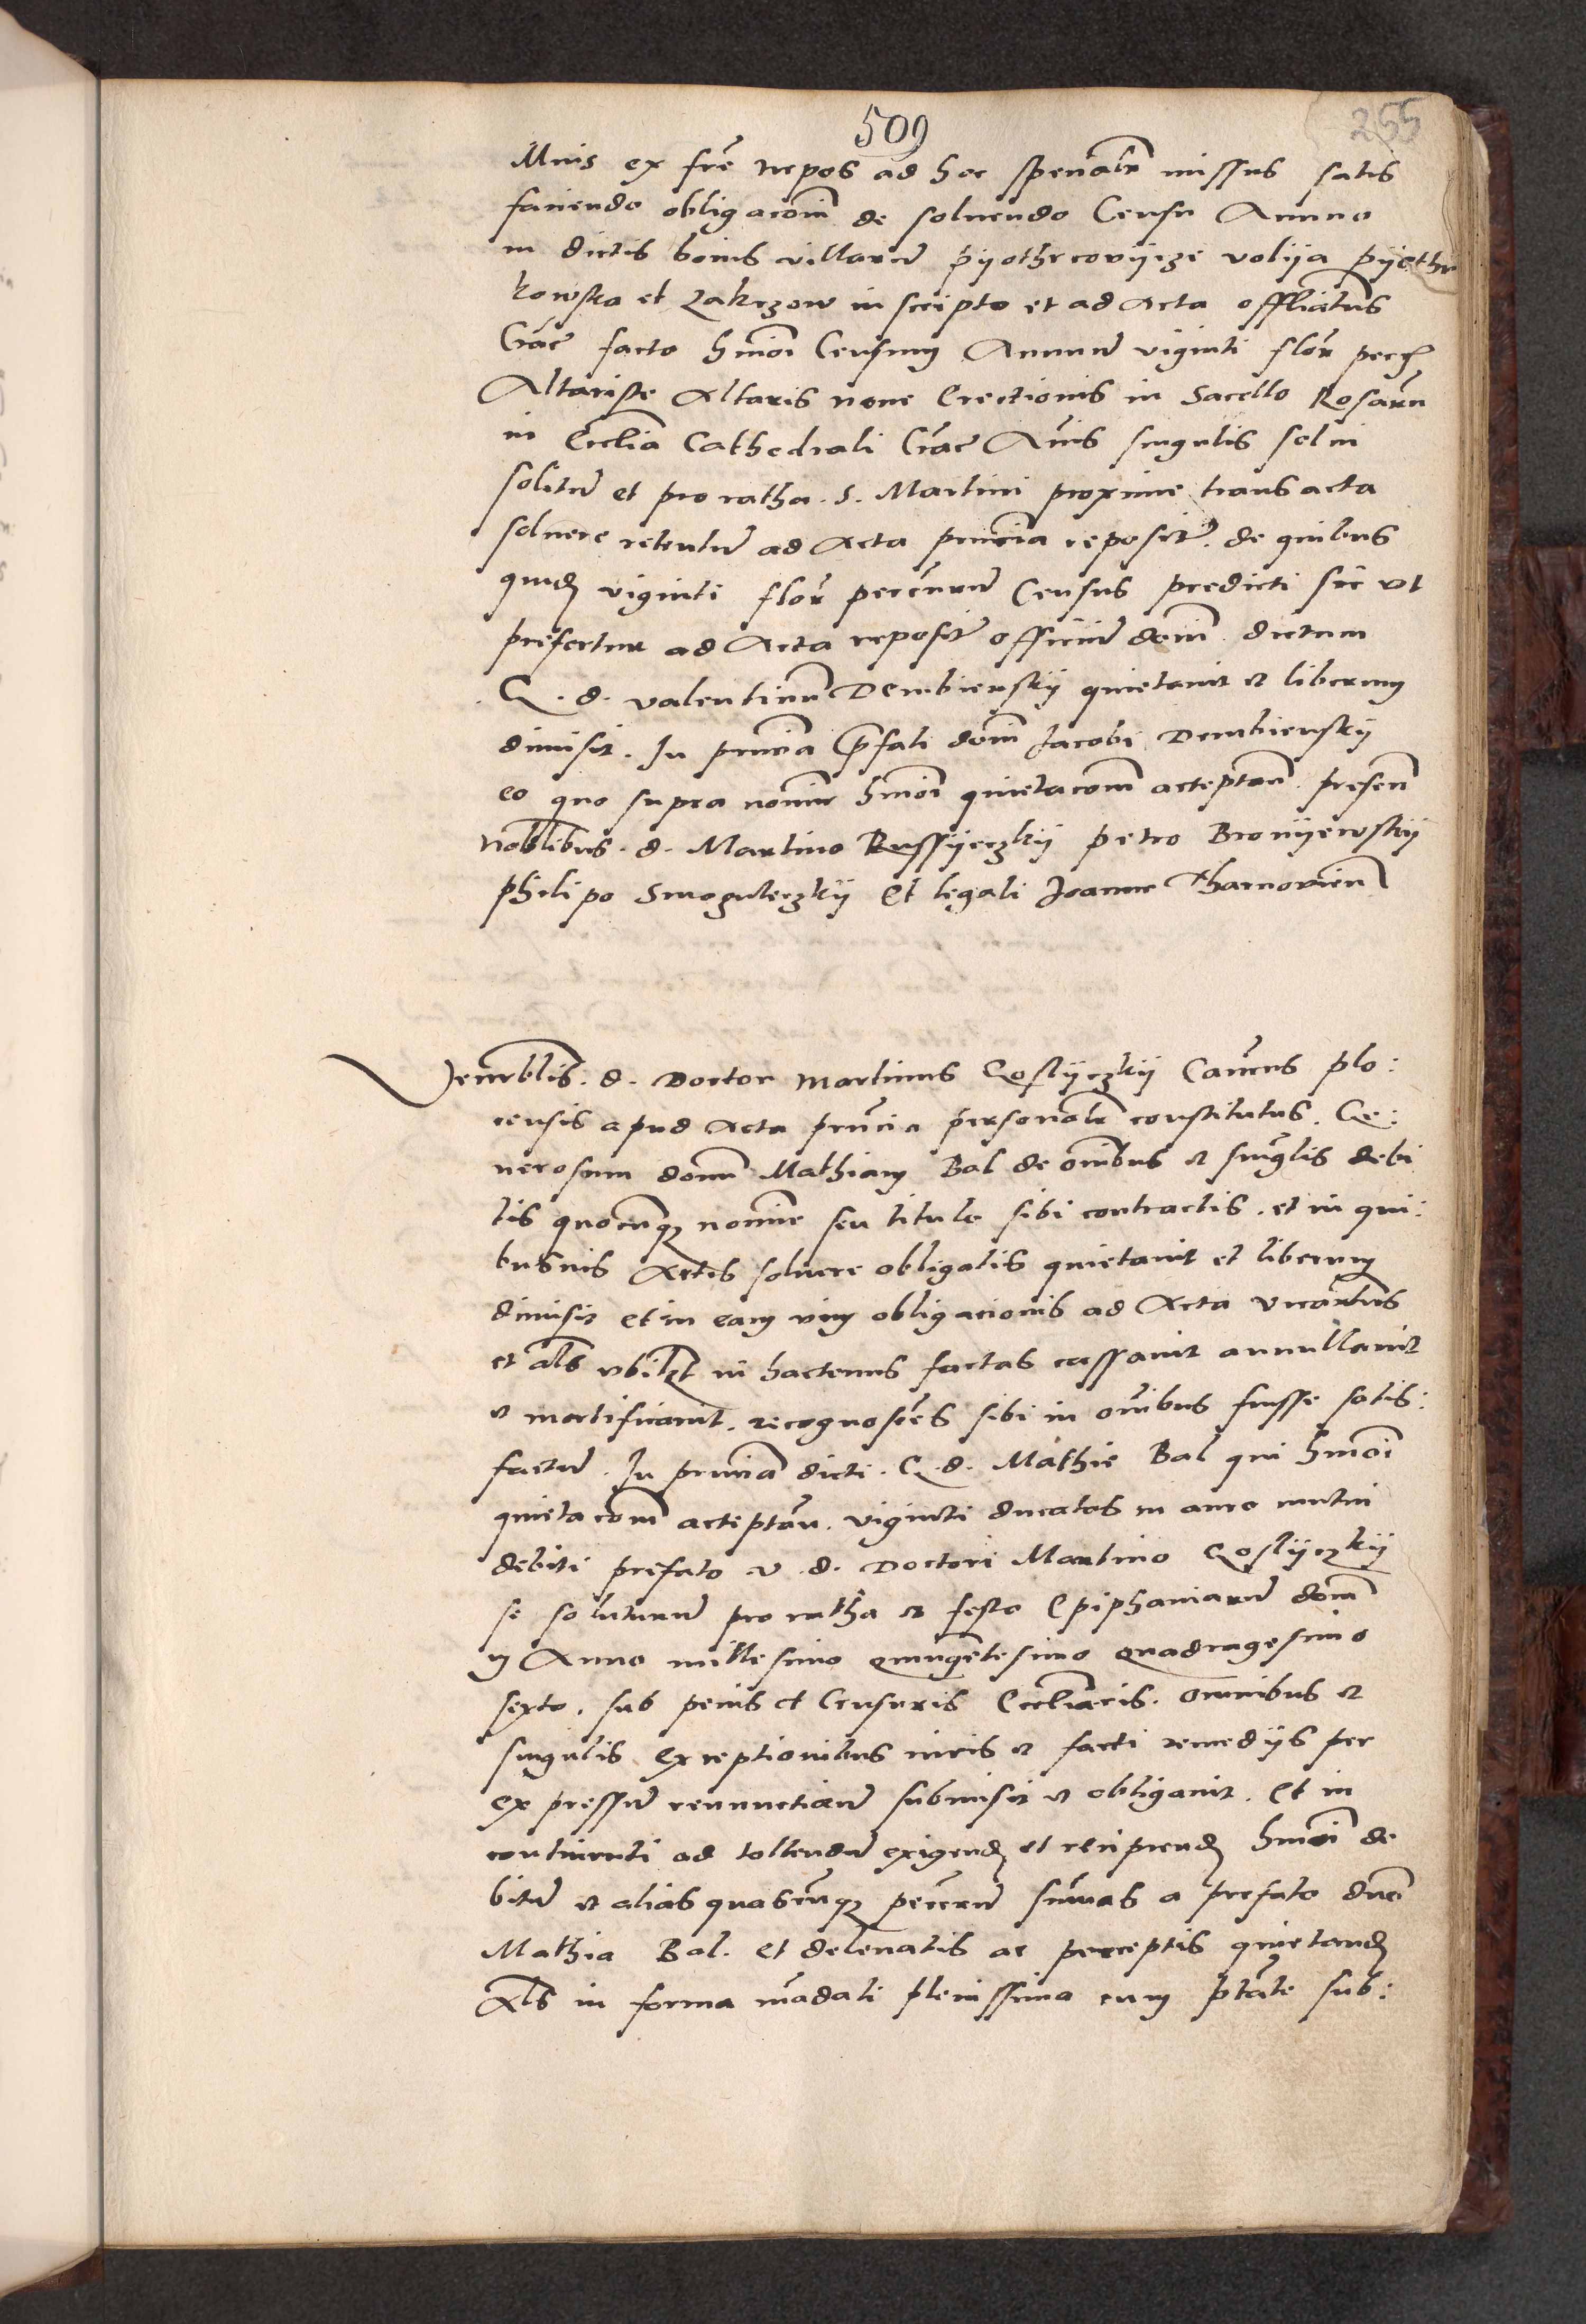 509
255
Illius ex fre nepos ad hoc spenalr missus satis
faciendo obligaconi de soluendo Censu Annuo
in dictis bonis villaru pyothrcovijcze volija pyethr
kowska et Zakrzow inscripto et ad Acta offliatus
Crac facto hmoi Censum Annuu viginti flor pecche
Altariste Altaris noue Erectionis in Sacello Rosaru
in Ecclia Cathedrali Crac Anis singulis solui
solitu et pro ratha. S. Martini proxime transacta
soluere retentu ad Acta pnncia reposit. de quibus
quid viginti flor peccuaru Census predicti sic vt
prefertur ad Acta reposit officiu dnm dictum
G. d. valentinu Dembiensky quietauit et liberum
dimisit. In pnncia pfati dni Jacobi Dembiensky
eo quo supra nomine hmoi quietacom acceptan. presen
Noblibus. d. Martino Russyeczky petro Bronyewsky
philipo Smoguleczky Et legali Joanne Tharnovien
Venerblis. d. Doctor Martinus Goslyczky Canicus plo:
censis apud Acta pnncia personalr constitutus. Ge:
nerosum domu Mathiam Bal de omibus et singlis debi
tis quocunqz nomine seu titulo sibi contractis. et in qui:
busuis Actis soluere obligatis quietauit et liberum
dimisit et in eam vim obligacionis ad Acta vicariatus
et als vbilzt in hactenus factas cassauit annullauit
et mortificauit. recognoscens sibi in omibus fuisse satis:
factu. In pnncia dicti. G. d. Mathie Bal qui hmoi
quietacom acceptau. viginti ducatos in auro mutui
debiti prefato v. d. Doctori Martino Goslyczky
se soluturu pro ratha et festo Epiphaniaru dom
in Anno millesimo quingetesimo quadragesimo
sexto. sub penis et Censuris Eccliacis. omnibus et
singulis exceptionibus iuris et facti remedijs per
expressu renunctiau submisit et obligauit. Et in
continenti ad tollendu exigend et recipiend hmoi de
bitu et alias quascunqz peccru sumas a prefato dno
Mathia Bal. et deleuatis ac perceptis quietand
Als in forma madati plenissima cum ptate sub: